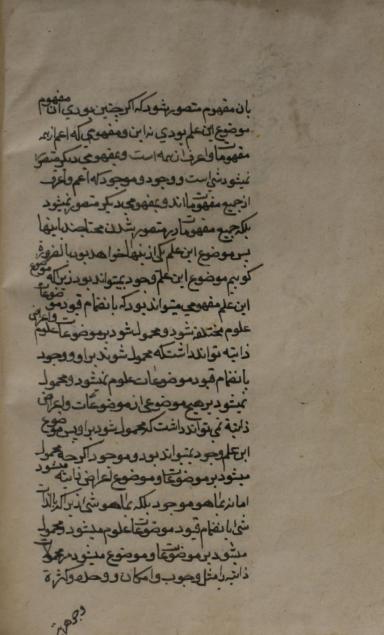 بان مفهوم متصور شود که اکر چنین بودی آن مفهوم
موضوع این علم بودی نه این و مفهومی که اعم از همه
مفهومات و اعرف از همه است و بمفهومی دیکر متصور
نمیشود شی است و وجود و موجود که اعم و اعرف
از جمیع مفهومات اند و بمفهومی دیکر متصور نمیشود
بلکه جمیع مفهومات در متصور شدن محتاجند باینها
پس موضوع این علم یکی از اینها خواهد بود بالضرورة
کوییم موضوع این علم وجود نمیتواند بود زیرا که موضوع
این علم مفهومی میتواند بود که بانضمام قیود موضوعات
علوم مختلفه شود و محمول شود بر موضوعات علوم و اعراض
ذاتیه تواند داشت که محمول شوند بر او و وجود
بانضمام قیود موضوعات علوم نمیشود و محمول
نمیشود بر هیچ موضوعی از موضوعات و اعراض
ذاتیه نمی تواند داشت که محمول شود بر او پس موضوع
این علم وجود نمیتواند بود و موجود اکرچه محمول
میشود بر موضوعات و موضوع اعراض ذاتیه میشود
اما نه بما هو موجود بلکه بما هو شی زیرا که بالذات
شی بانضمام قیود موضوعات علوم میشود و محمول
میشود بر موضوعات و موضوع میشود مر محمولات
ذاتیه را مثل وجوب و امکان و وحدة و کثرة